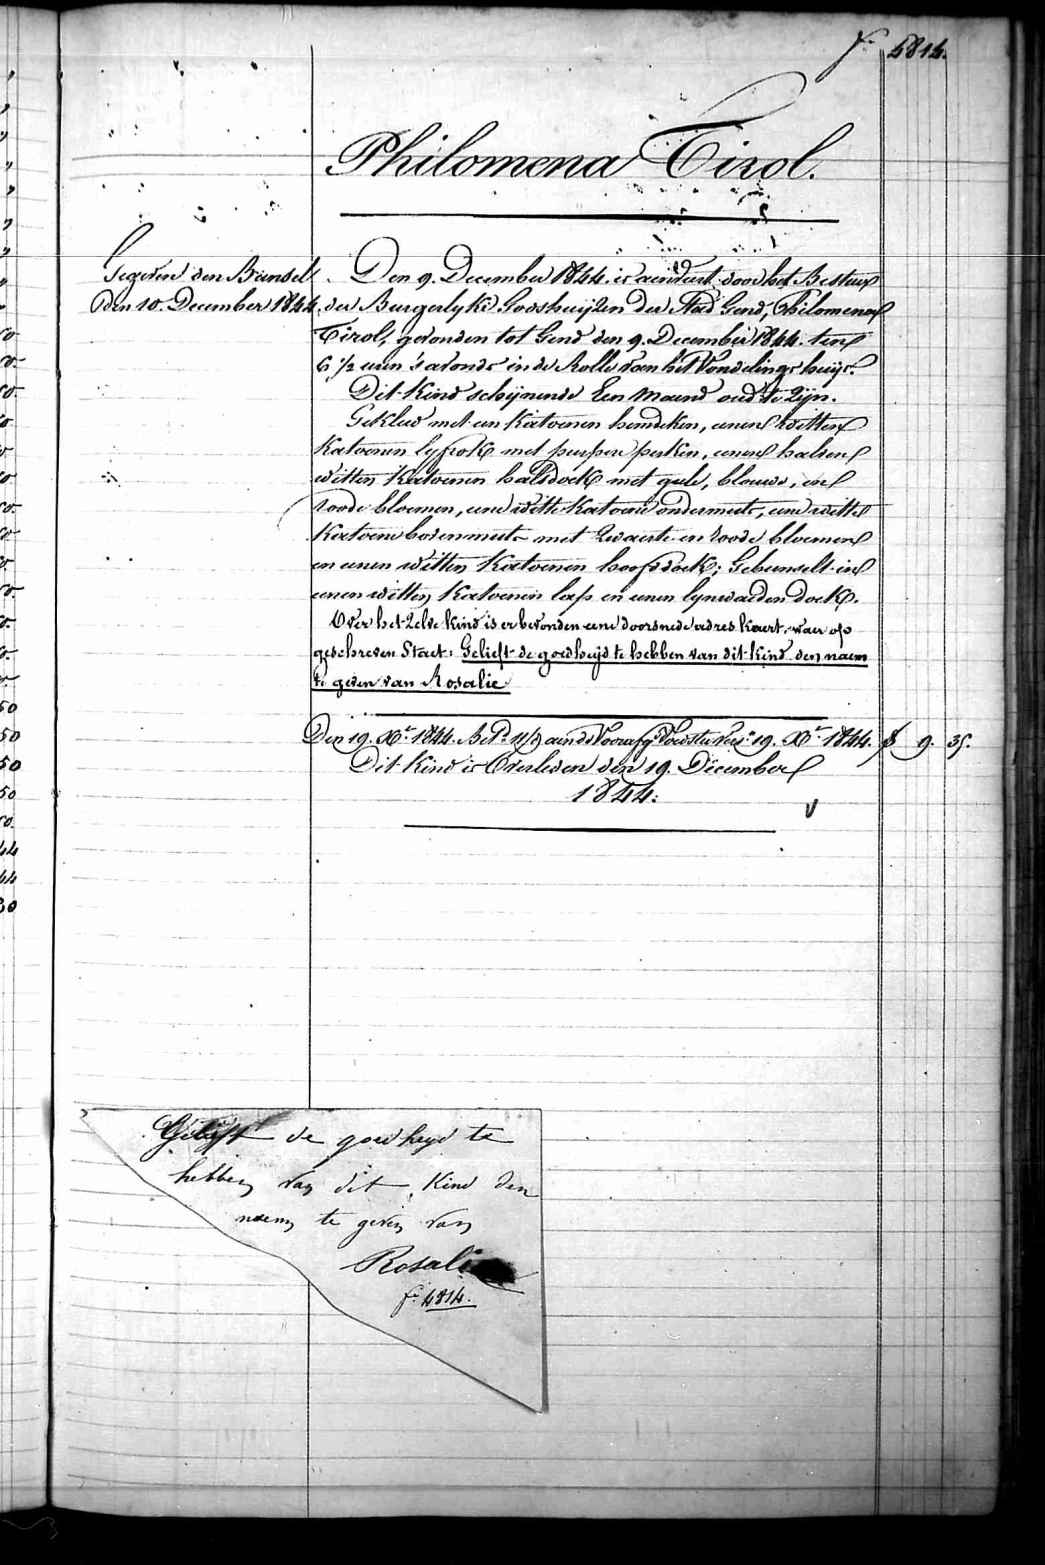 fo 4814.
Philomena Tirol.
Gegeven den Bunsel
den 10. December 1844.
Den 9. December 1844. is aenveert door het Bestuur
der Burgerlyke Godshuijzen der Stad Gend, Philomena
Tirol, gevonden tot Gend den 9. December 1844. ten
6 1/2 uren 's avonds in de Rolle van het Vondelings huijs.
Dit Kind schijnende Een Maend oud te zijn.
Gekleed met een Katoenen hemdeken, eenen witten
Katoenen lyfrok met purpere perken, eenen halven
witten Katoenen halsdoek met gele, blauwe, en
roode bloemen, eene witte Katoene ondermuts, eene witte
Katoene bovenmuts met Zwarte en roode bloemen
en eenen witten Katoenen hoofddoek; Gebunselt in
eenen witten Katoenen lap en eenen lynwaeden doek.
Over het Zelve kind is er bevonden eene doorsnede adres kaert, waer op
geschreven Staet: Gelieft de goedheijd te hebben van dit kind den naem
te geven van Rosalie
Den 19. Xr. 1844. Bet. aen de Voedster 19. Xr. 1844. 9. 35.
Dit Kind is Overleden den 19. December
1844.
Gelieft de goedheyd te
hebben van dit Kind den
naem te geven van
Rosalie
fo 4814.
50
50
50
50
44
44
30